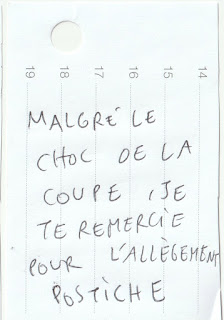 14
15
16
17
18
19
MALGRÉ LE
CHOC DE LA
COUPE, JE
TE REMERCIE
POUR L'ALLÈGEMENT
POSTICHE